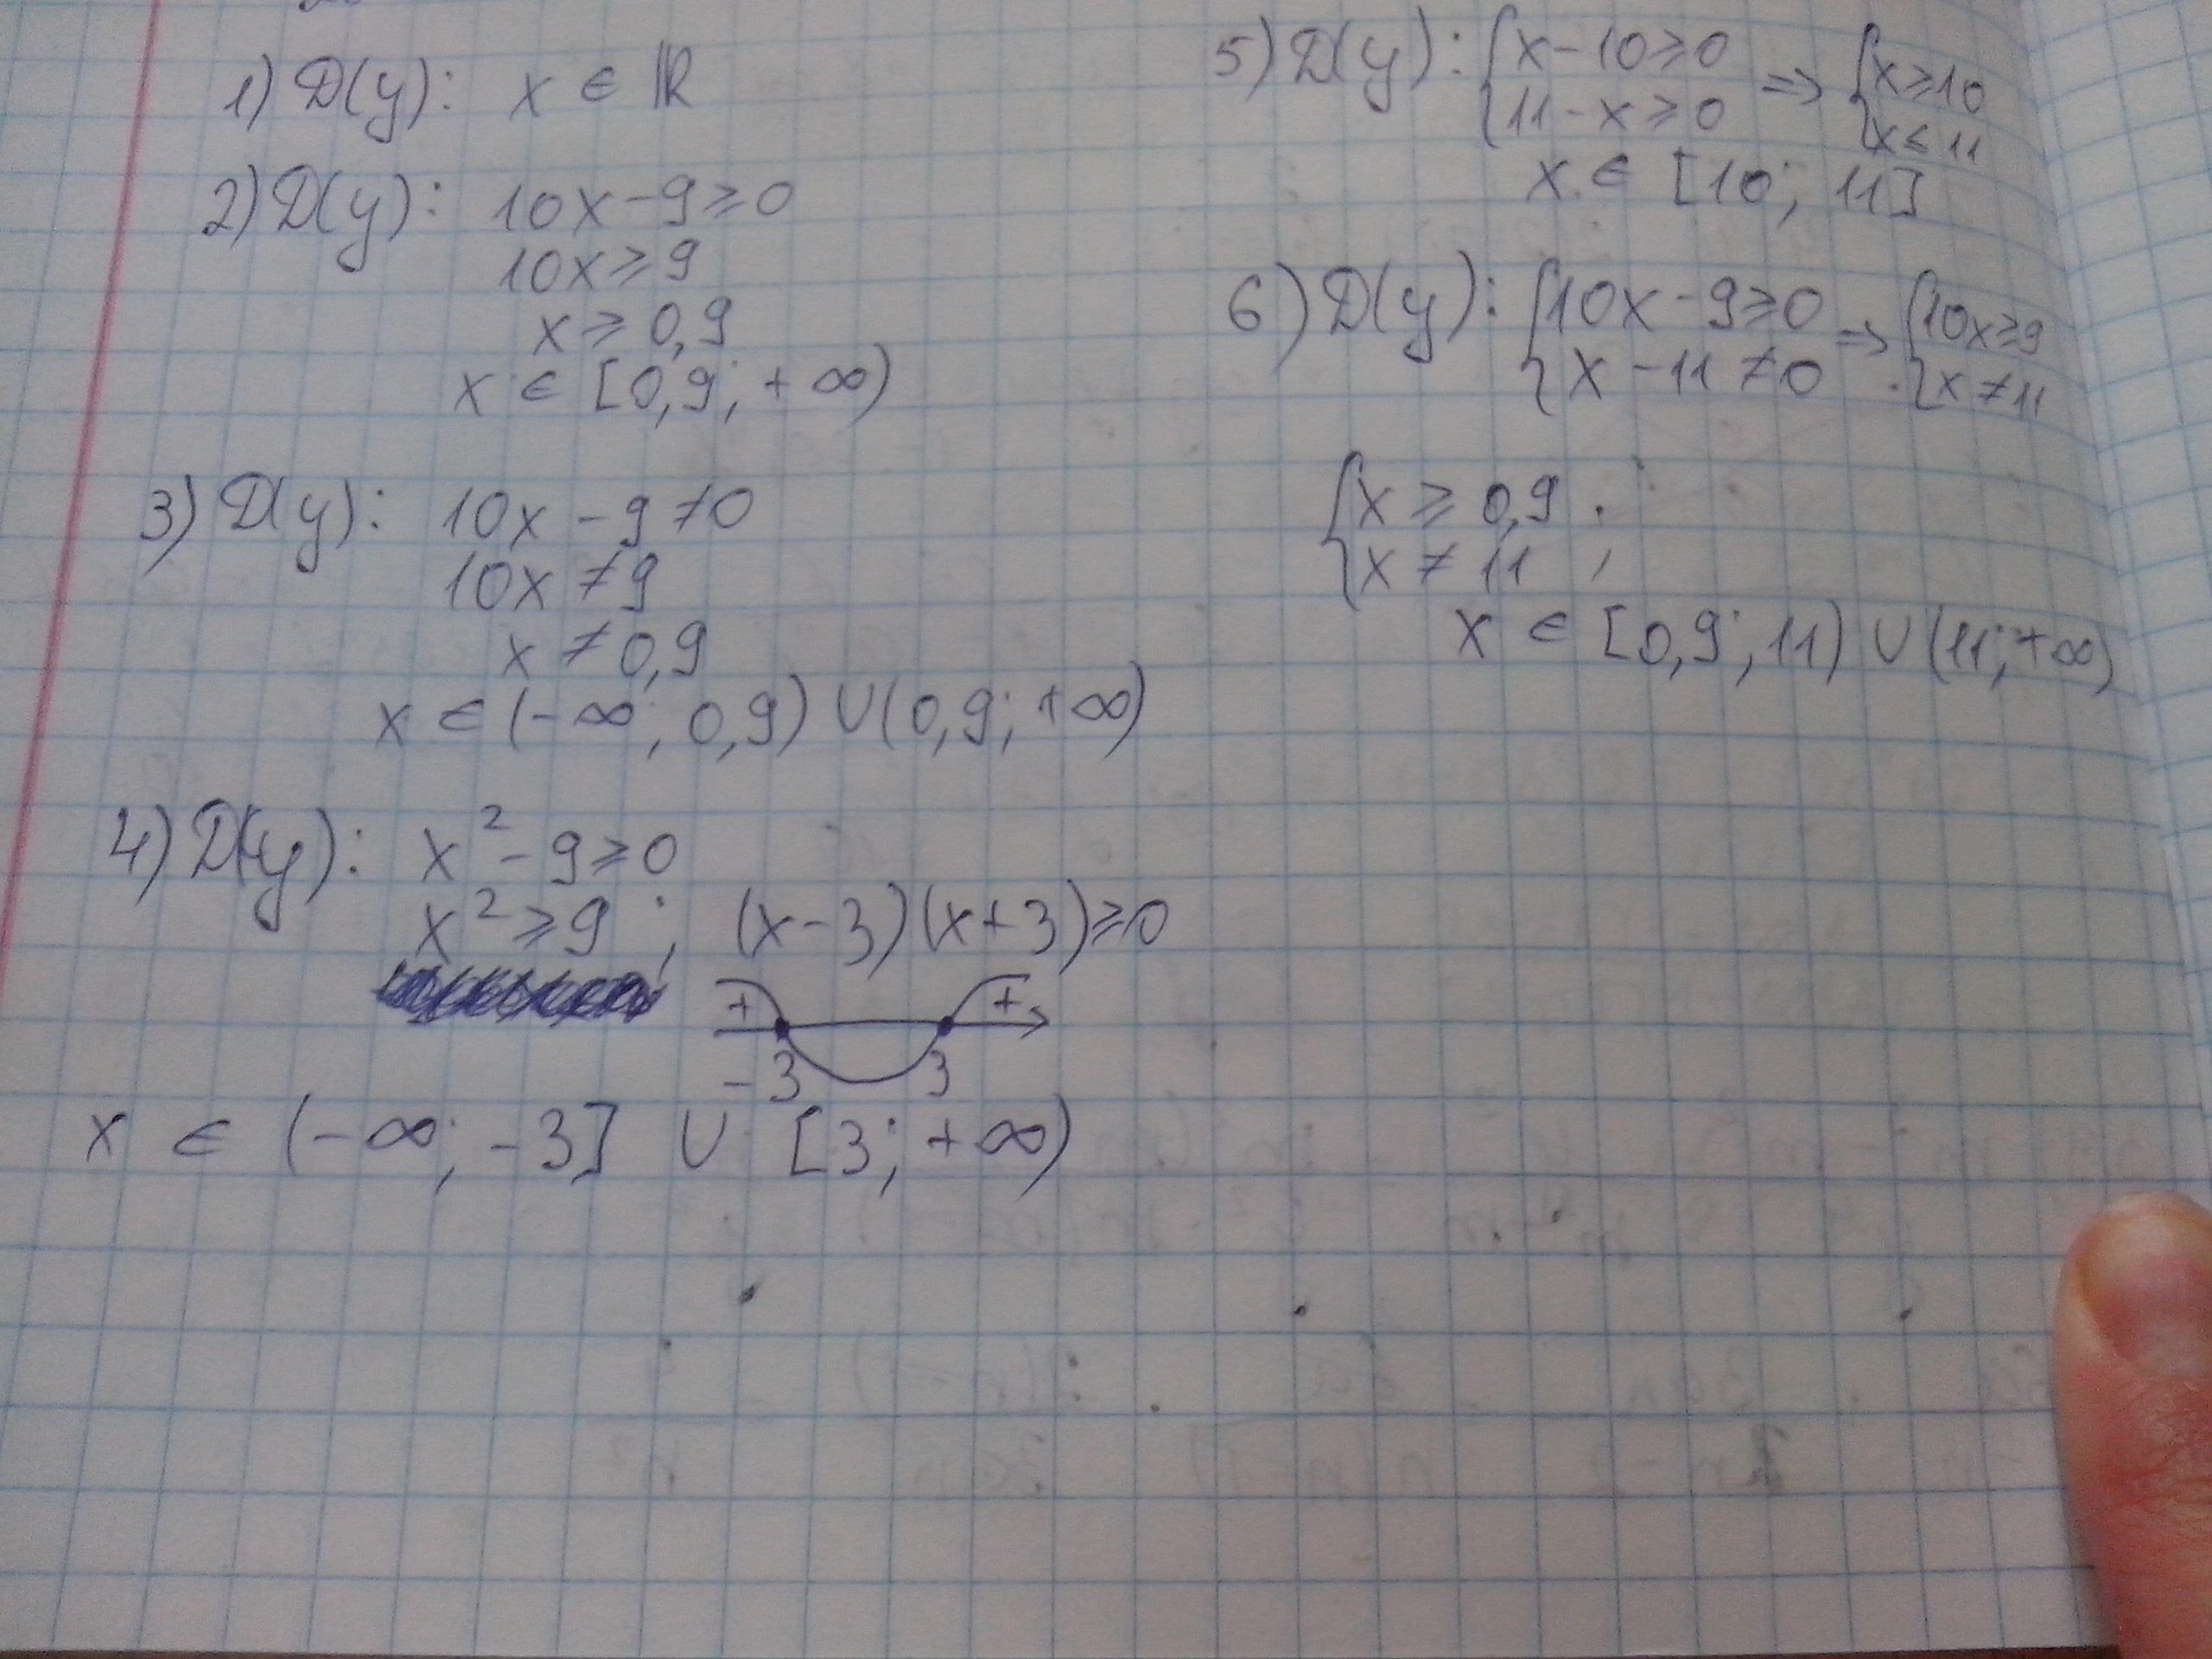 1) D(y): x ∈ ℝ
2) D(y): 10x - 9 ⩾ 0
10x ⩾ 9
x ⩾ 0,9
x ∈ [0,9; +∞)
3) D(y): 10x - 9 ≠ 0
10x ≠ 9
x ≠ 0,9
x ∈ (-∞; 0,9) ∪ (0,9; +∞)
4) D(y): x² - 9 ⩾ 0
x² ⩾ 9 ; (x-3)(x+3) ⩾ 0
+ +
-3 3
x ∈ (-∞; -3] ∪ [3; +∞)
5) D(y): { x - 10 ⩾ 0 ⇒ { x ⩾ 10
11 - x ⩾ 0 x ⩽ 11
x ∈ [10; 11]
6) D(y): { 10x - 9 ⩾ 0 ⇒ { 10x ⩾ 9
x - 11 ≠ 0 x ≠ 11
{ x ⩾ 0,9 ;
x ≠ 11
x ∈ [0,9; 11) ∪ (11; +∞)